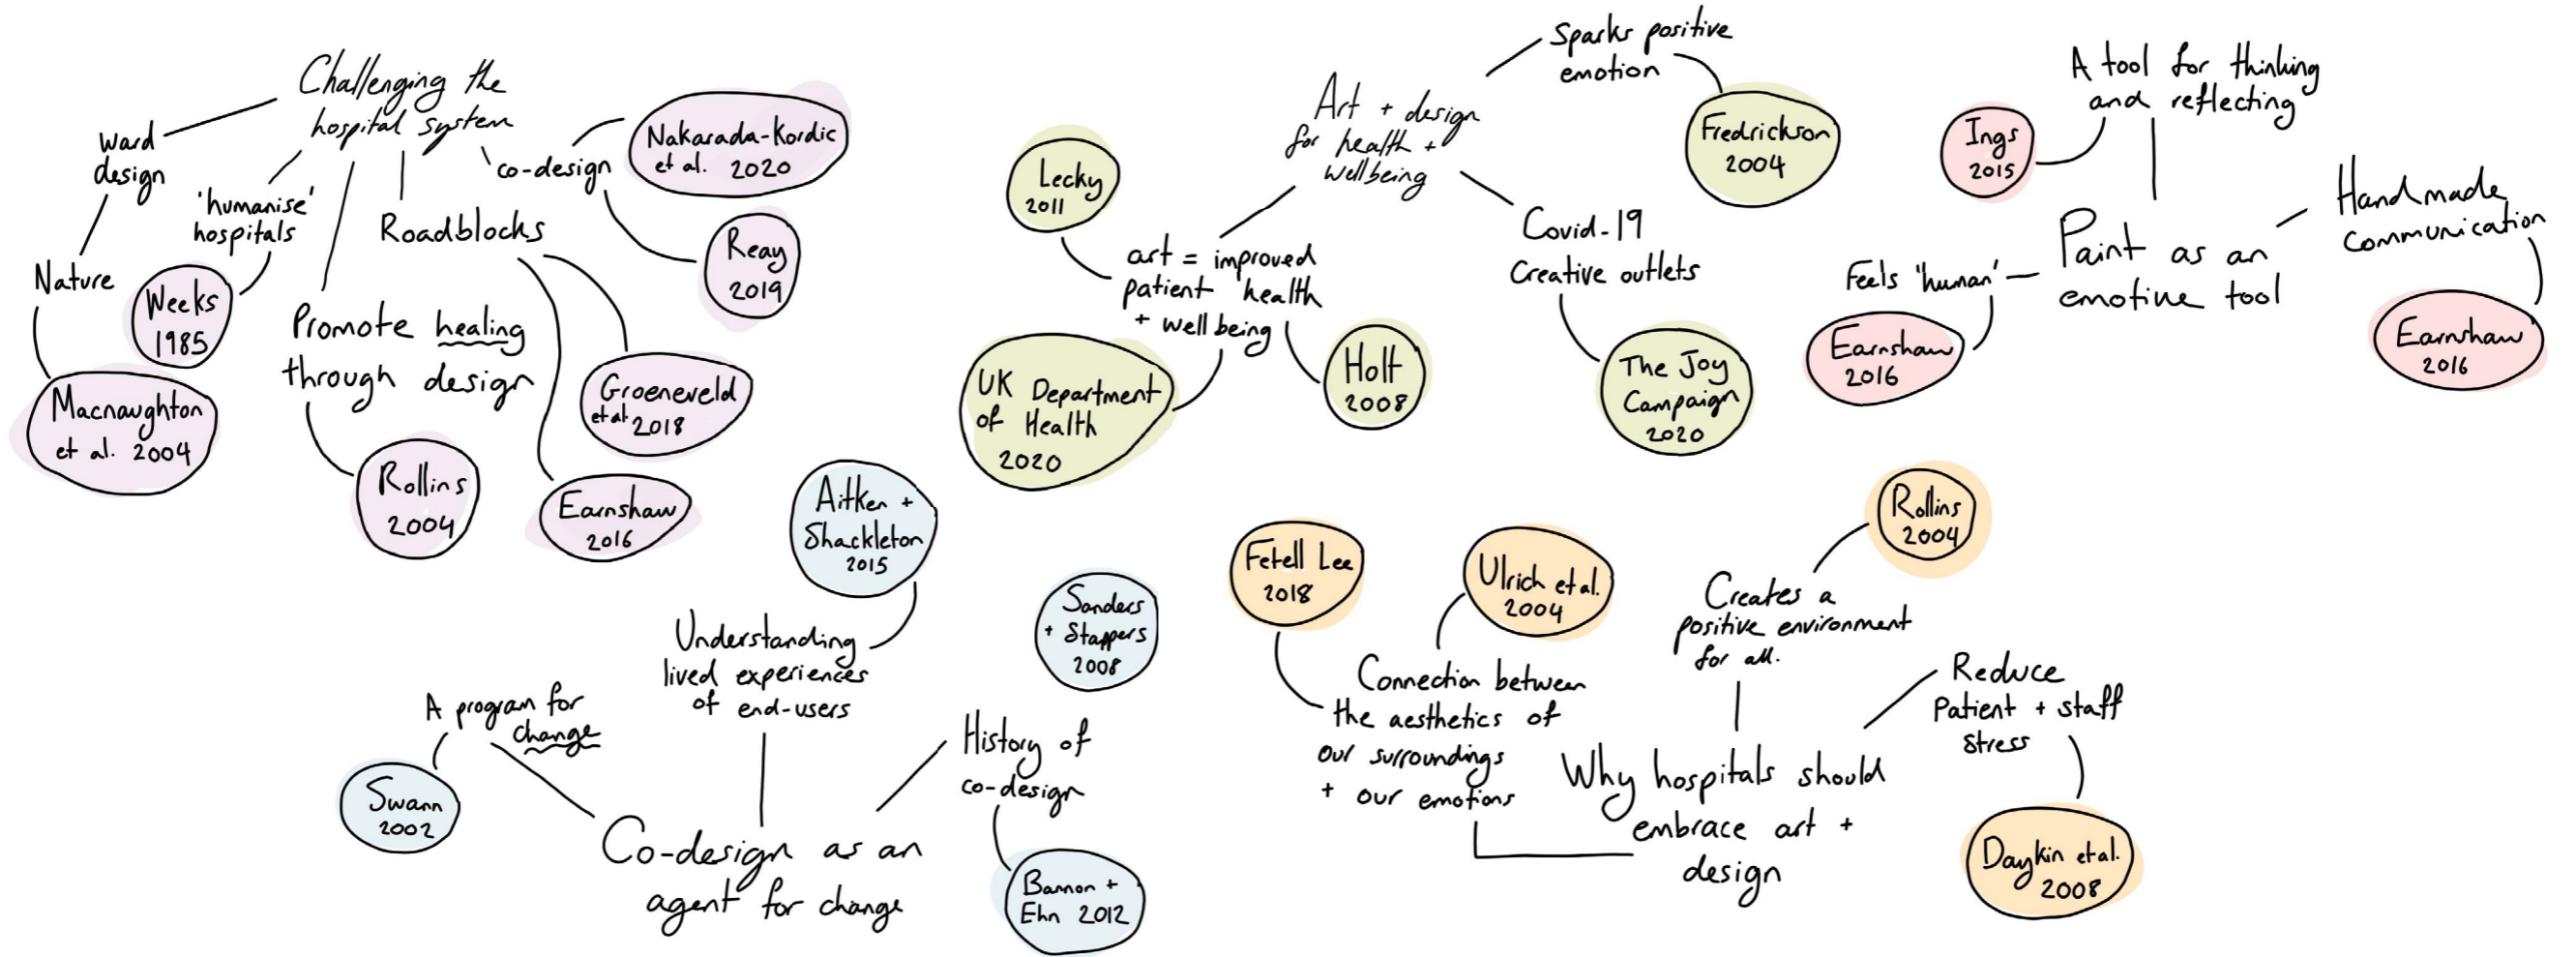 Challenging the
hospital system
ward
design
Nature
Macnaughton
et al. 2004
'humanise'
hospitals
Weeks
1985
Promote healing
through design
Rollins
2004
Roadblocks
Groeneveld
et al. 2018
Earnshaw
2016
co-design
Nakarada-Kordic
et al. 2020
Reay
2019
Art + design
for health +
wellbeing
Sparks positive
emotion
Fredrickson
2004
Lecky
2011
art = improved
patient health
+ well being
UK Department
of Health
2020
Holt
2008
Covid-19
Creative outlets
The Joy
Campaign
2020
A tool for thinking
and reflecting
Ings
2015
Paint as an
emotive tool
Feels 'human'
Earnshaw
2016
Handmade
communication
Earnshaw
2016
Aitken +
Shackleton
2015
Understanding
lived experiences
of end-users
Sanders
+ Stappers
2008
A program for
change
Swann
2002
History of
co-design
Bannon +
Ehn 2012
Co-design as an
agent for change
Fetell Lee
2018
Ulrich et al.
2004
Connection between
the aesthetics of
our surroundings
+ our emotions
Rollins
2004
Creates a
positive environment
for all.
Reduce
Patient + staff
stress
Daykin et al.
2008
Why hospitals should
embrace art +
design